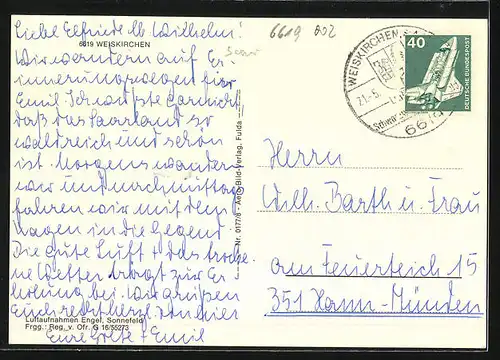 Liebe Elfriede u. Wilhelm!
6619 WEISKIRCHEN
Wir wandern auf Er
innerungswegen für
Emil. Ich wußte garnicht
daß das Saarland so
waldreich und schön
ist. Morgens wandern
wir und nachmittags
fahren wir mit dem
Wagen in die Gegend.
Die gute Luft + das trocke
ne Wetter trägt zur Er
holung bei. Wir grüßen
Euch recht herzlich
Luftaufnahmen Engel, Sonnefeld
Frgg.: Reg. v. Ofr. G 16/55273
Eure Grete + Emil
Nr. 0177/8 - Aero-Bild-Verlag, Fulda
6619
WEISKIRCHEN
21.-5.
6619
40
DEUTSCHE BUNDESPOST
Herrn
Wilh. Barth u. Frau
am Feuerteich 15
351 Hann.-Münden